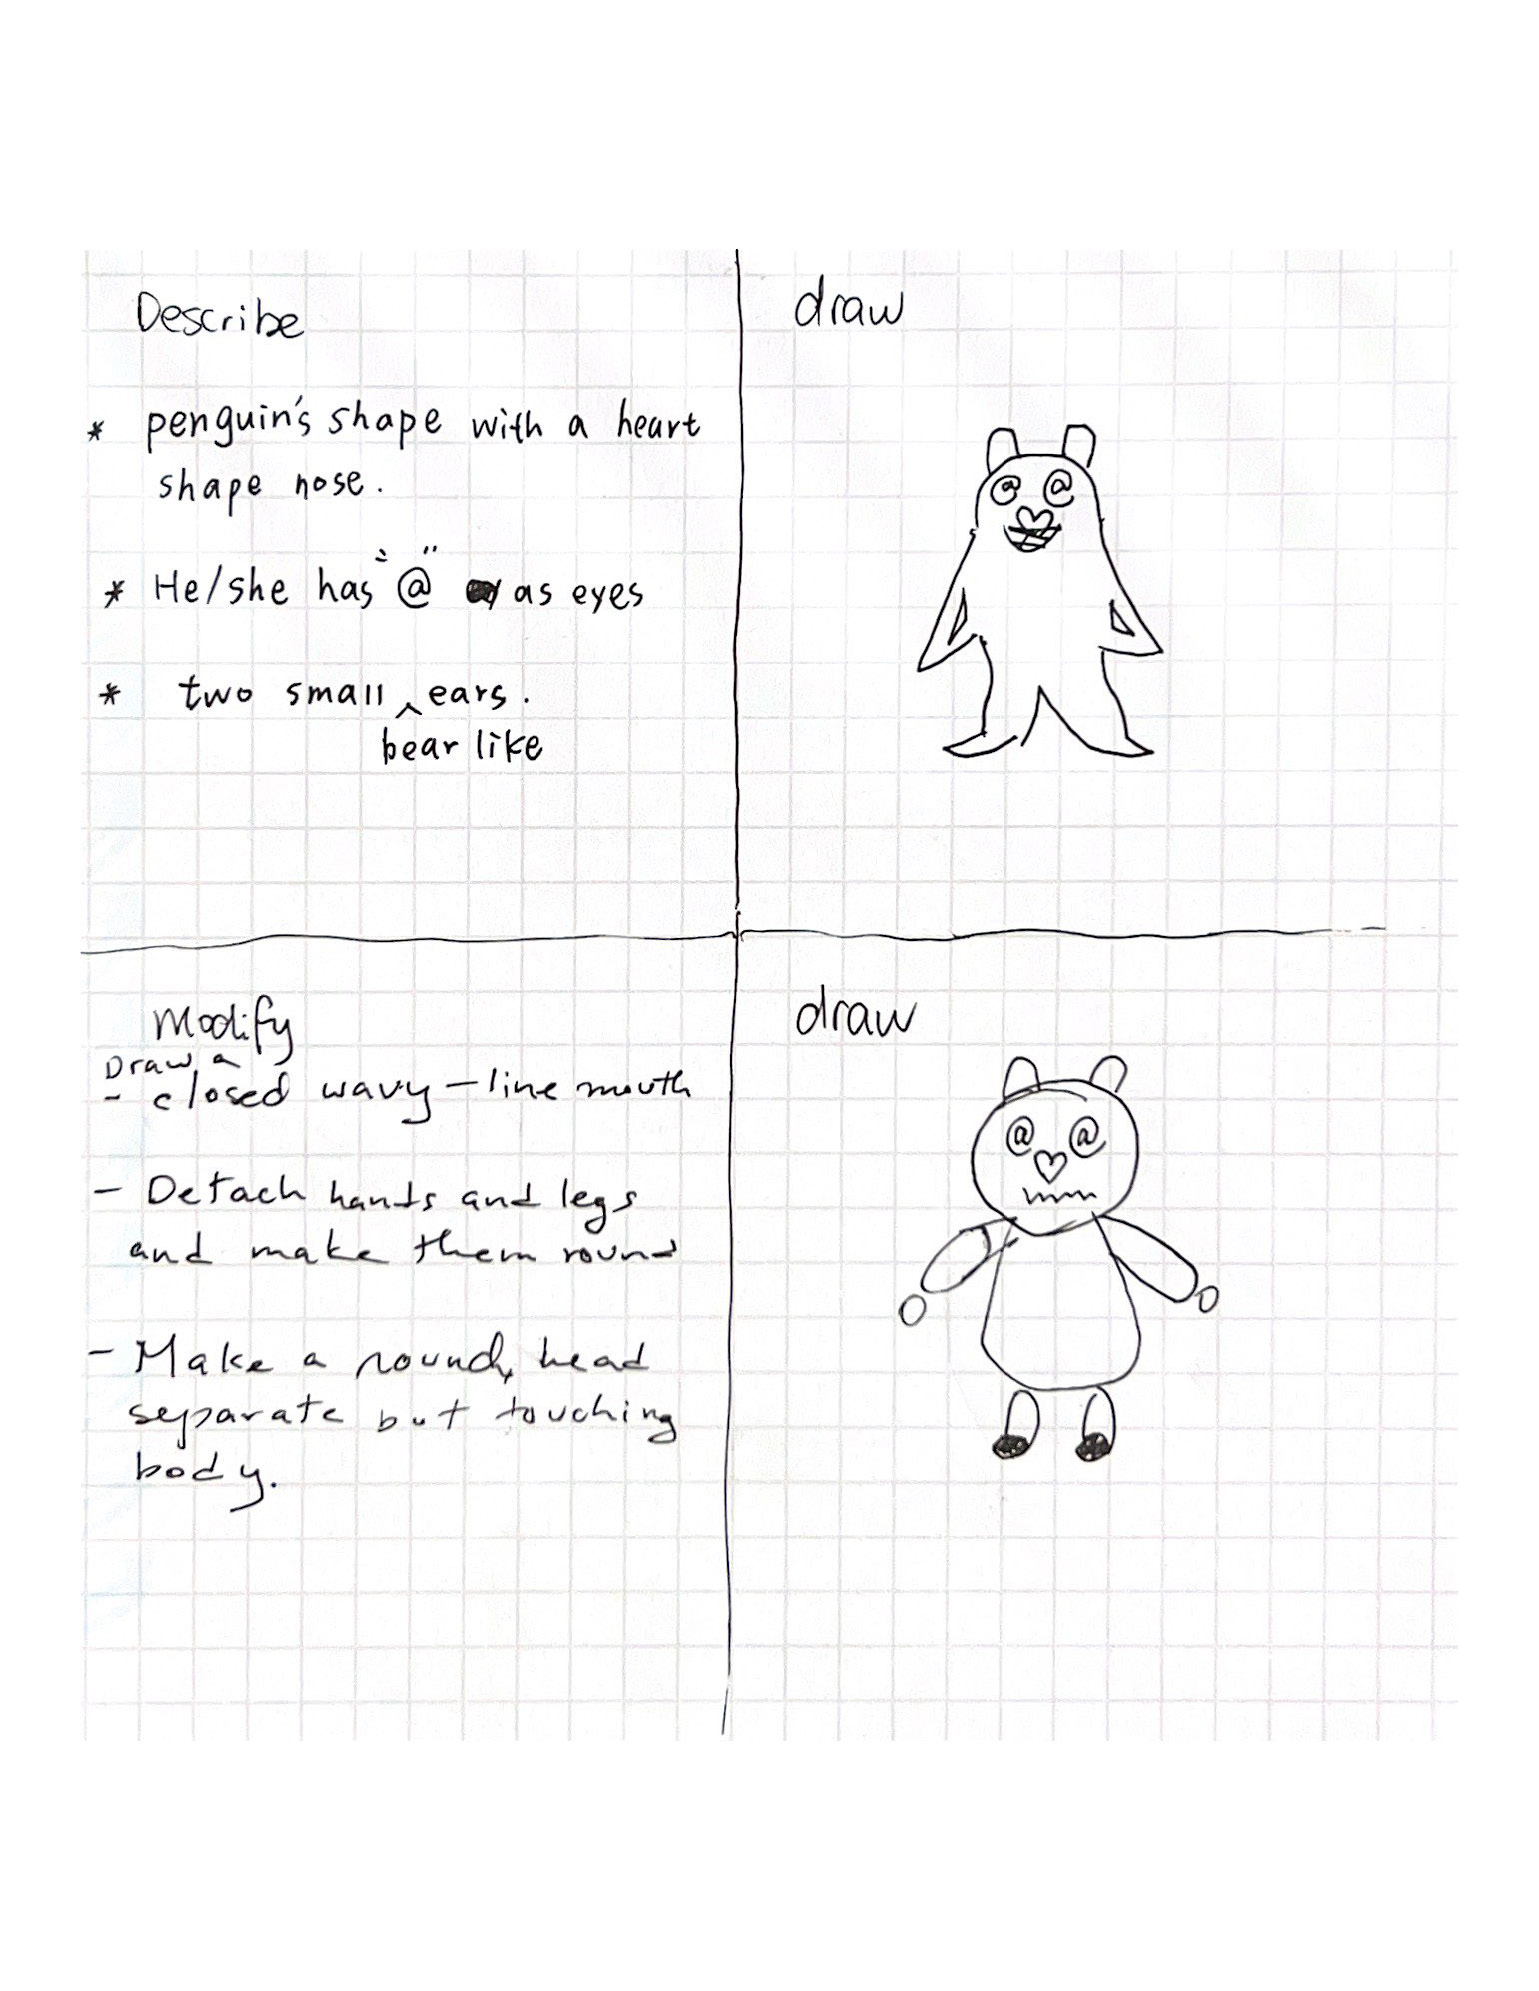 Describe
* penguin's shape with a heart
shape nose.
* He/she has "@" as eyes
* two small ^ ears.
bear like
draw
@ @
Modify
Draw a
- closed wavy-line mouth
- Detach hands and legs
and make them round
- Make a round, head
separate but touching
body.
draw
@ @